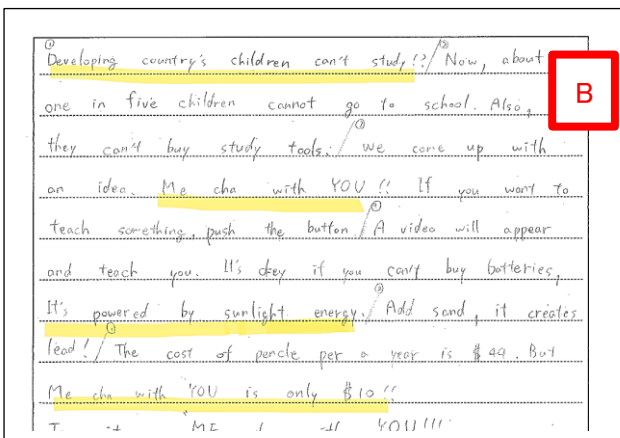 ① Developing country's children can't study!?/② Now, about
B
one in five children cannot go to school. Also,
they can't buy study tools./③ we come up with
an idea. Me cha with YOU!! If you want to
teach something, push the button./ A video will appear
and teach you. It's okey if you can't buy batteries,
It's powered by sunlight energy./ Add sand, it creates
lead!/ The cost of pencle per a year is $49. But
Me cha with YOU is only $10!!
it ME YOU!!!